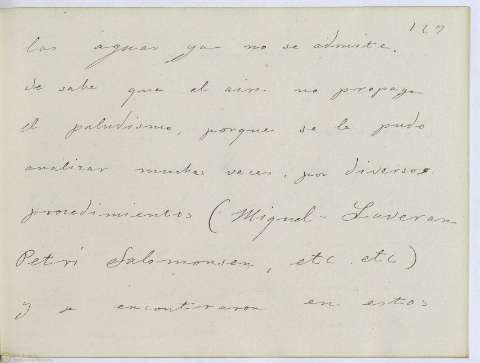 117
las aguas ya no se admite.
Se sabe que el aire no propaga
el paludismo, porque se le pudo
analizar muchas veces, por diversos
procedimientos (Miquel-Laveran
Petri Salomonsen, etc etc)
y se encontraron en estos